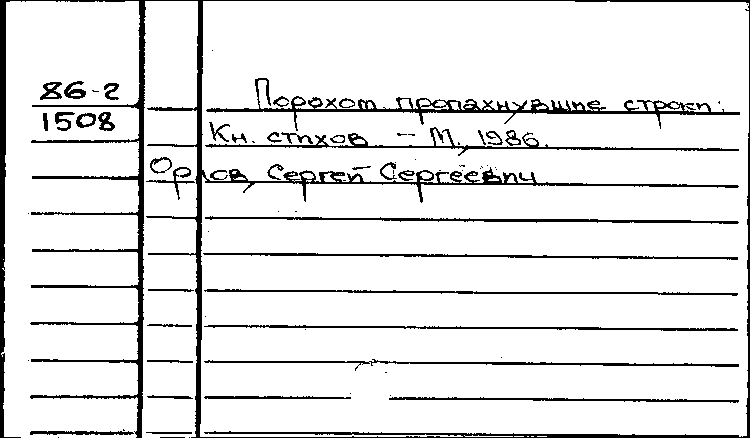 86-2
Порохом пропахнувшие строки:
1508
Кн. стихов - М., 1986.
Орлов, Сергей Сергеевич